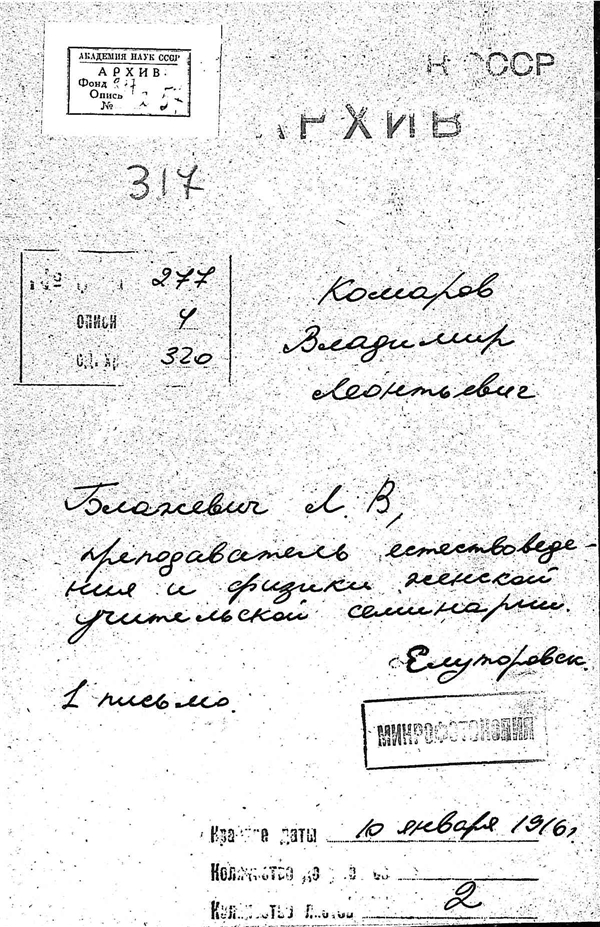 АКАДЕМИЯ НАУК СССР
АРХИВ
Фонд 277
Опись
№
СССР
АРХИВ
317
№ 277
описи 4
ед. хр. 320
Комаров
Владимир
Леонтьевич
Блажевич Л. В,
преподаватель естествоведе-
ния и физики женской
учительской семинарии.
Елуторовск.
1 письмо.
МИКРОФОТОКОПИЯ
Крайние даты 10 января 1916 г.
Количество
Количество листов 2